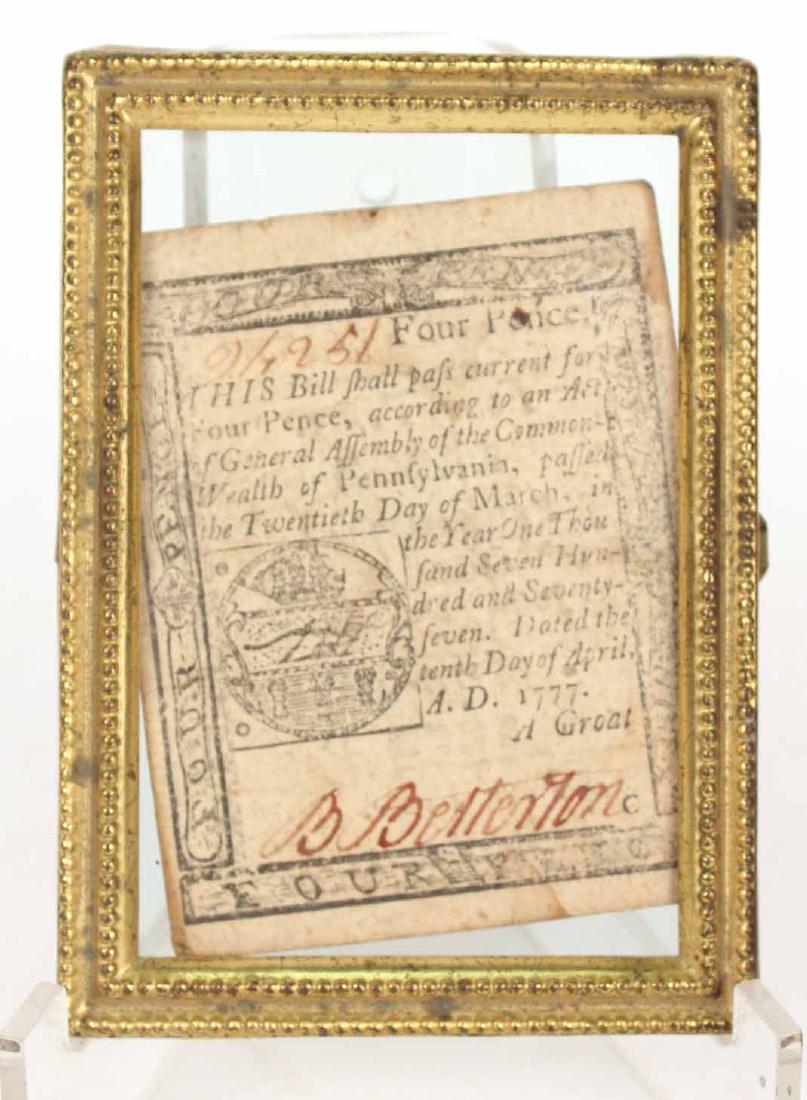 FOUR PENCE
94251 Four Pence.
THIS Bill ſhall paſs current for
Four Pence, according to an Act
of General Aſſembly of the Common-
Wealth of Pennſylvania, paſſed
the Twentieth Day of March, in
the Year One Thou
ſand Seven Hun-
dred and Seventy-
ſeven. Dated the
tenth Day of April,
A. D. 1777.
A Groat
B Betterton
C
FOUR PENCE
FOUR PENC